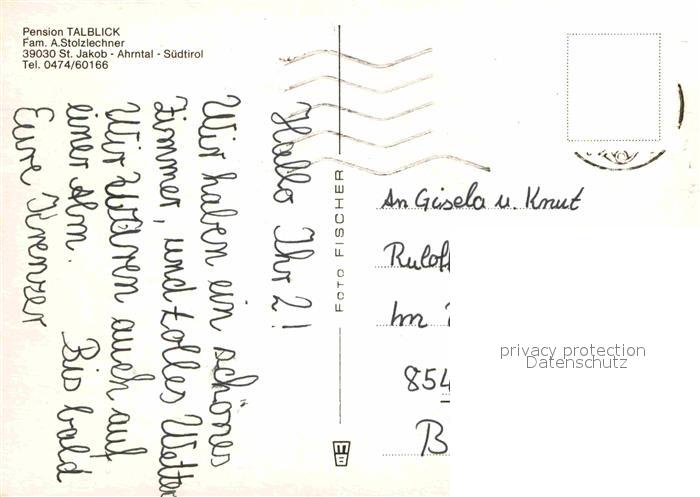 Pension TALBLICK
Fam. A.Stolzlechner
39030 St. Jakob - Ahrntal - Südtirol
Tel. 0474/60166
Hallo Ihr 2!
Wir haben ein schönes
Zimmer, und tolles Wetter
Wir waren auch auf
einer Alm. Bis bald
Eure
FOTO FISCHER
An Gisela u. Knut
Ruloff
Im
854
B
privacy protection
Datenschutz